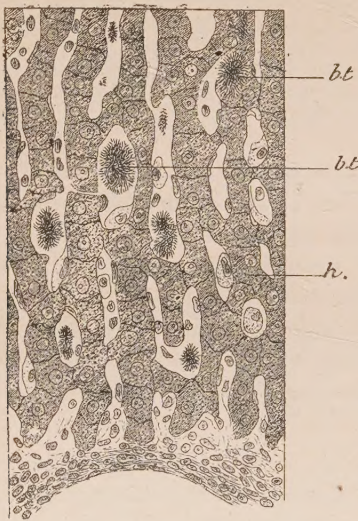 bt
bt
h.